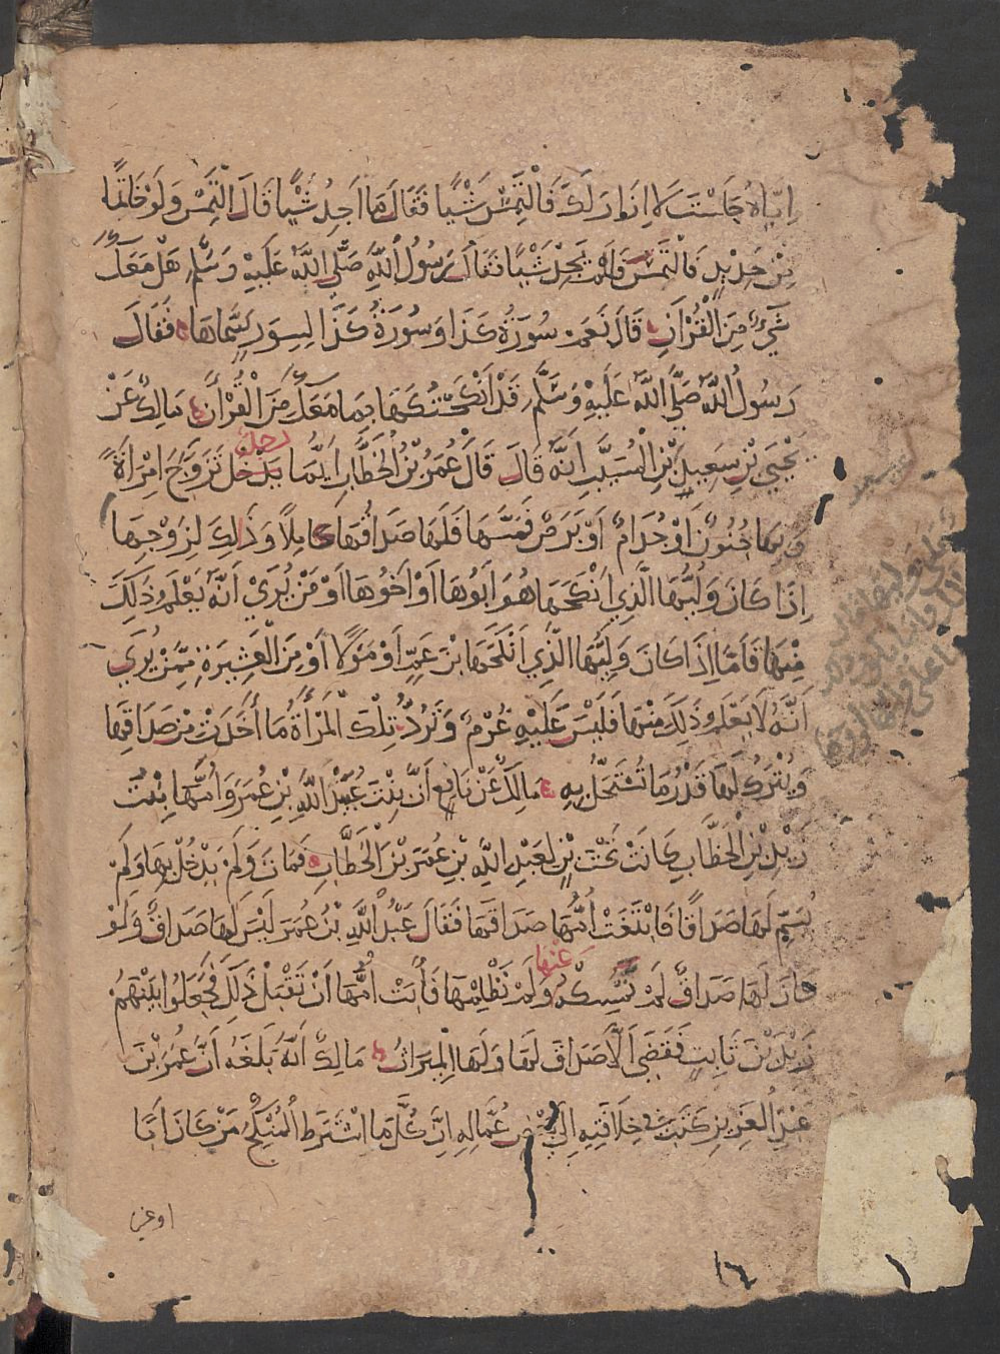 اِيَّاهُ جَلَسْتَ لَا اِزَارَ لَكَ فَالْتَمِسْ شَيْئًا فَقَالَ مَا اَجِدُ شَيْئًا قَالَ الْتَمِسْ وَلَوْ خَاتَمًا
مِنْ حَدِيدٍ فَالْتَمَسَ فَلَمْ يَجِدْ شَيْئًا فَقَالَ رَسُولُ اللَّهِ صَلَّى اللَّهُ عَلَيْهِ وَسَلَّمَ هَلْ مَعَكَ
شَيْءٌ مِنَ الْقُرْآنِ قَالَ نَعَمْ سُورَةُ كَذَا وَسُورَةُ كَذَا لِسِوَرٍ سَمَّاهَا فَقَالَ
رَسُولُ اللَّهِ صَلَّى اللَّهُ عَلَيْهِ وَسَلَّمَ قَدْ اَنْكَحْتُكَهَا بِمَا مَعَكَ مِنَ الْقُرْآنِ مَالِكٌ عَنْ
يَحْيَى بْنِ سَعِيدٍ بْنِ الْمُسَيَّبِ اَنَّهُ قَالَ قَالَ عُمَرُ بْنُ الْخَطَّابِ اَيُّمَا رجل تَزَوَّجَ امْرَاَةً
وَبِهَا جُنُونٌ اَوْ جُذَامٌ اَوْ بَرَصٌ فَمَسَّهَا فَلَهَا صَدَاقُهَا كَامِلًا وَذَلِكَ لِزَوْجِهَا
اِذَا كَانَ وَلِيُّهَا الَّذِي اَنْكَحَهَا هُوَ اَبُوهَا اَوْ اَخُوهَا اَوْ مَنْ يُرَى اَنَّهُ يَعْلَمُ ذَلِكَ
مِنْهَا فَاَمَّا اِذَا كَانَ وَلِيُّهَا الَّذِي اَنْكَحَهَا بْنَ عَمٍّ اَوْ مَوْلًا اَوْ مِنَ الْعَشِيرَةِ مِمَّنْ يُرَى
اَنَّهُ لَا يَعْلَمُ ذَلِكَ مِنْهَا فَلَيْسَ عَلَيْهِ غُرْمٌ وَتَرُدُّ تِلْكَ الْمَرْأَةُ مَا أَخَذَتْ مِنْ صَدَاقِهَا
وَيُتْرَكُ لَهَا قَدْرُ مَا تُسْتَحَلُّ بِهِ مَالِكٌ عَنْ نَافِعٍ اَنَّ بِنْتَ عُبَيْدِ اللَّهِ بْنِ عُمَرَ وَاُمُّهَا بِنْتُ
زَيْدِ بْنِ الْخَطَّابِ كَانَتْ تَحْتَ بْنٍ لِعَبْدِ اللَّهِ بْنِ عُمَرَ بْنِ الْخَطَّابِ فَمَاتَ وَلَمْ يَدْخُلْ بِهَا وَلَمْ
يُسَمِّ لَهَا صَدَاقًا فَابْتَغَتْ اُمُّهَا صَدَاقَهَا فَقَالَ عَبْدُ اللَّهِ بْنُ عُمَرَ لَيْسَ لَهَا صَدَاقٌ وَلَوْ
كَانَ لَهَا صَدَاقٌ لَمْ نُمْسِكْهُ عنها وَلَمْ نَظْلِمْهَا فَأَبَتْ اُمُّهَا اَنْ تَقْبَلَ ذَلِكَ فَجَعَلُوا بَيْنَهُمْ
زَيْدَ بْنَ ثَابِتٍ فَقَضَى اَلَّا صَدَاقَ لَهَا وَلَهَا الْمِيرَاثُ مَالِكٌ اَنَّهُ بَلَغَهُ اَنَّ عُمَرَ بْنَ
عَبْدِ الْعَزِيزِ كَتَبَ فِي خِلَافَتِهِ اِلَى بَعْضِ عُمَّالِهِ اِنَّ كُلَّ مَا اشْتَرَطَ الْمُنْكِحُ مَنْ كَانَ اَبًا
اوغير